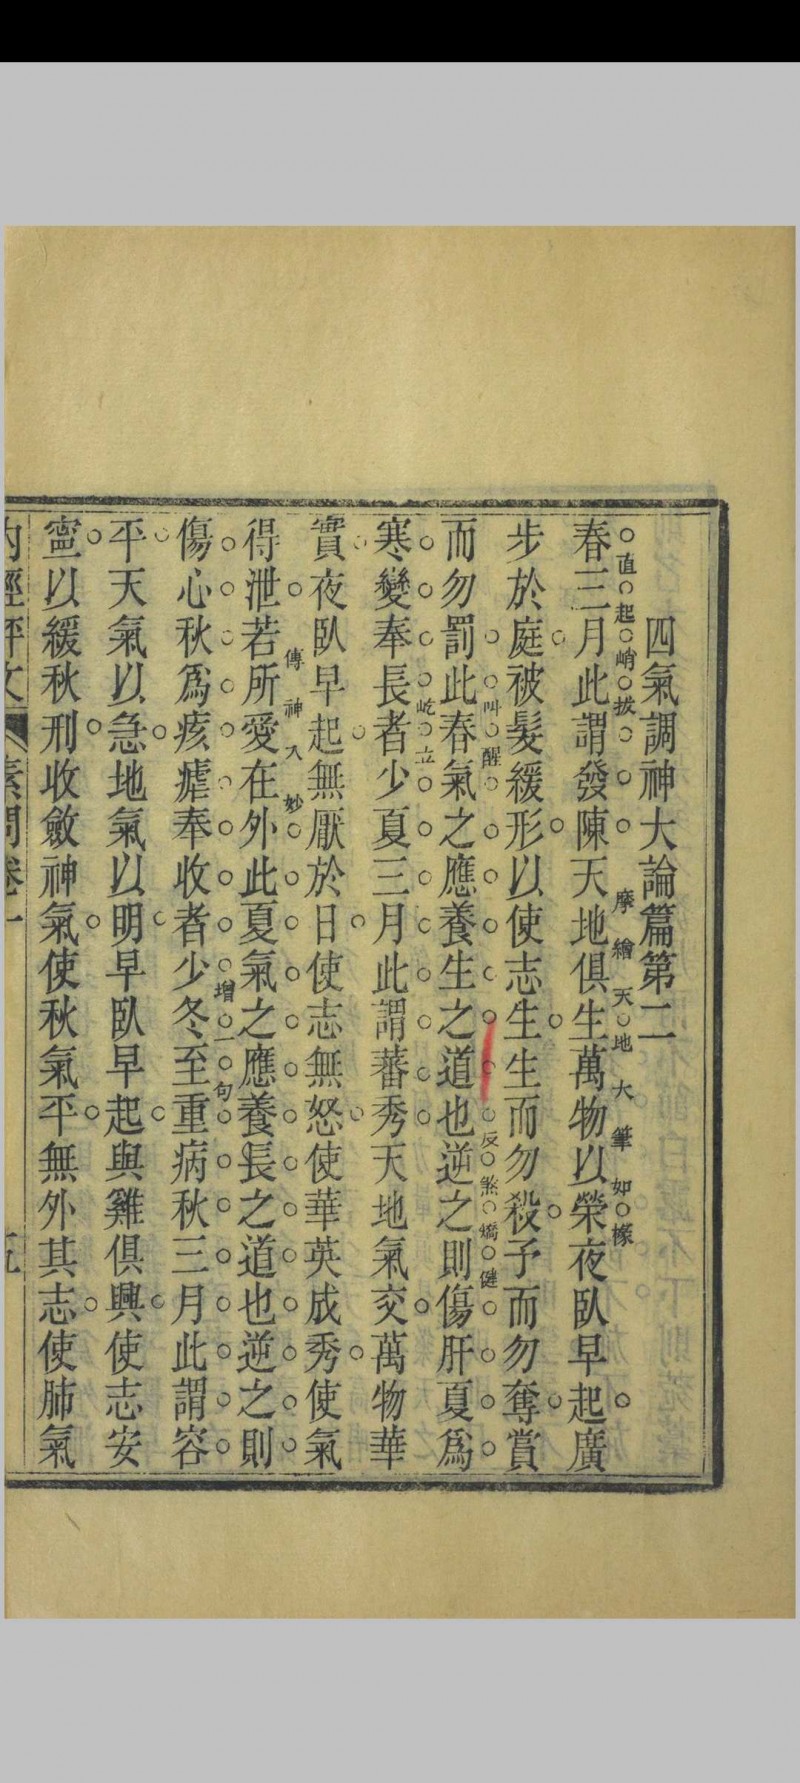 四氣調神大論篇第二
春三月此謂發陳天地俱生萬物以榮夜臥早起廣
直起峭拔
摩繪天地大筆如椽
步於庭被髮緩形以使志生生而勿殺予而勿奪賞
而勿罰此春氣之應養生之道也逆之則傷肝夏爲
叫醒
反煞矯健
寒變奉長者少夏三月此謂蕃秀天地氣交萬物華
屹立
實夜臥早起無厭於日使志無怒使華英成秀使氣
得泄若所愛在外此夏氣之應養長之道也逆之則
傳神入妙
傷心秋爲痎瘧奉收者少冬至重病秋三月此謂容
增一句
平天氣以急地氣以明早臥早起與雞俱興使志安
寍以緩秋刑收斂神氣使秋氣平無外其志使肺氣
內經評文 素問卷一 五